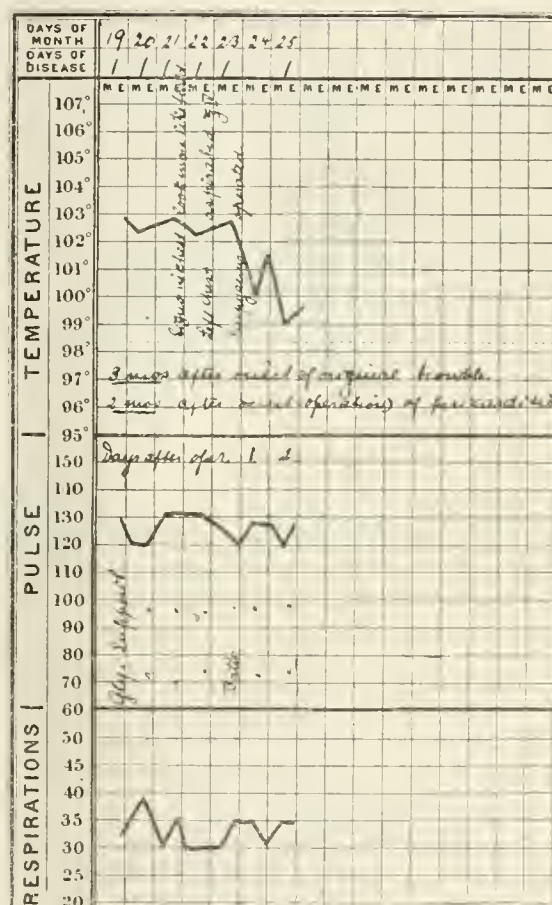 DAYS OF MONTH 19 20 21 22 23 24 25
DAYS OF DISEASE
M E M E M E M E M E M E M E M E M E M E M E M E M E
TEMPERATURE
107°
106°
105°
104°
103°
102°
101°
100°
99°
98°
97°
96°
95°
Left chest aspirated
operated
3 mos after onset of original trouble.
2 mos after operation) of
PULSE
Days after oper. 1 2
150
130
120
110
100
90
80
70
60
Gly. Suppos
RESPIRATIONS
50
45
40
35
30
25
20